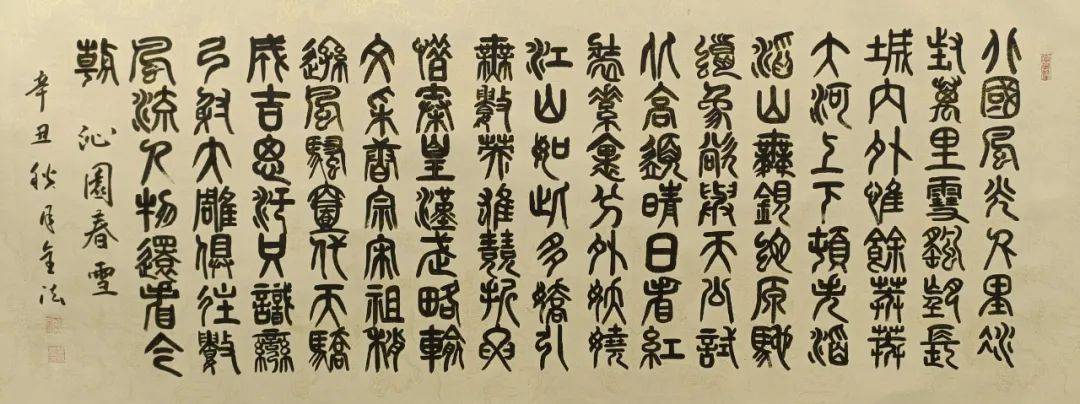 北國風光千里冰
封萬里雪飄望長
城内外惟餘莽莽
大河上下頓失滔
滔山舞銀蛇原馳
蠟象欲與天公試
比高須晴日看紅
裝素裹分外妖嬈
江山如此多嬌引
無數英雄競折腰
惜秦皇漢武略輸
文采唐宗宋祖稍
遜風騷壹代天驕
成吉思汗只識彎
弓射大雕俱往數
風流人物還看今
朝 沁園春雪
辛丑秋月金法